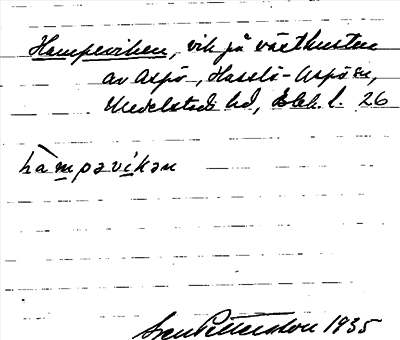 Hampeviken, vik på västkusten
av Aspö, Hasslö-Aspö sn,
Medelstads hd, Blek. l. 26
hàmpəvikən
Sven Petterson 1935